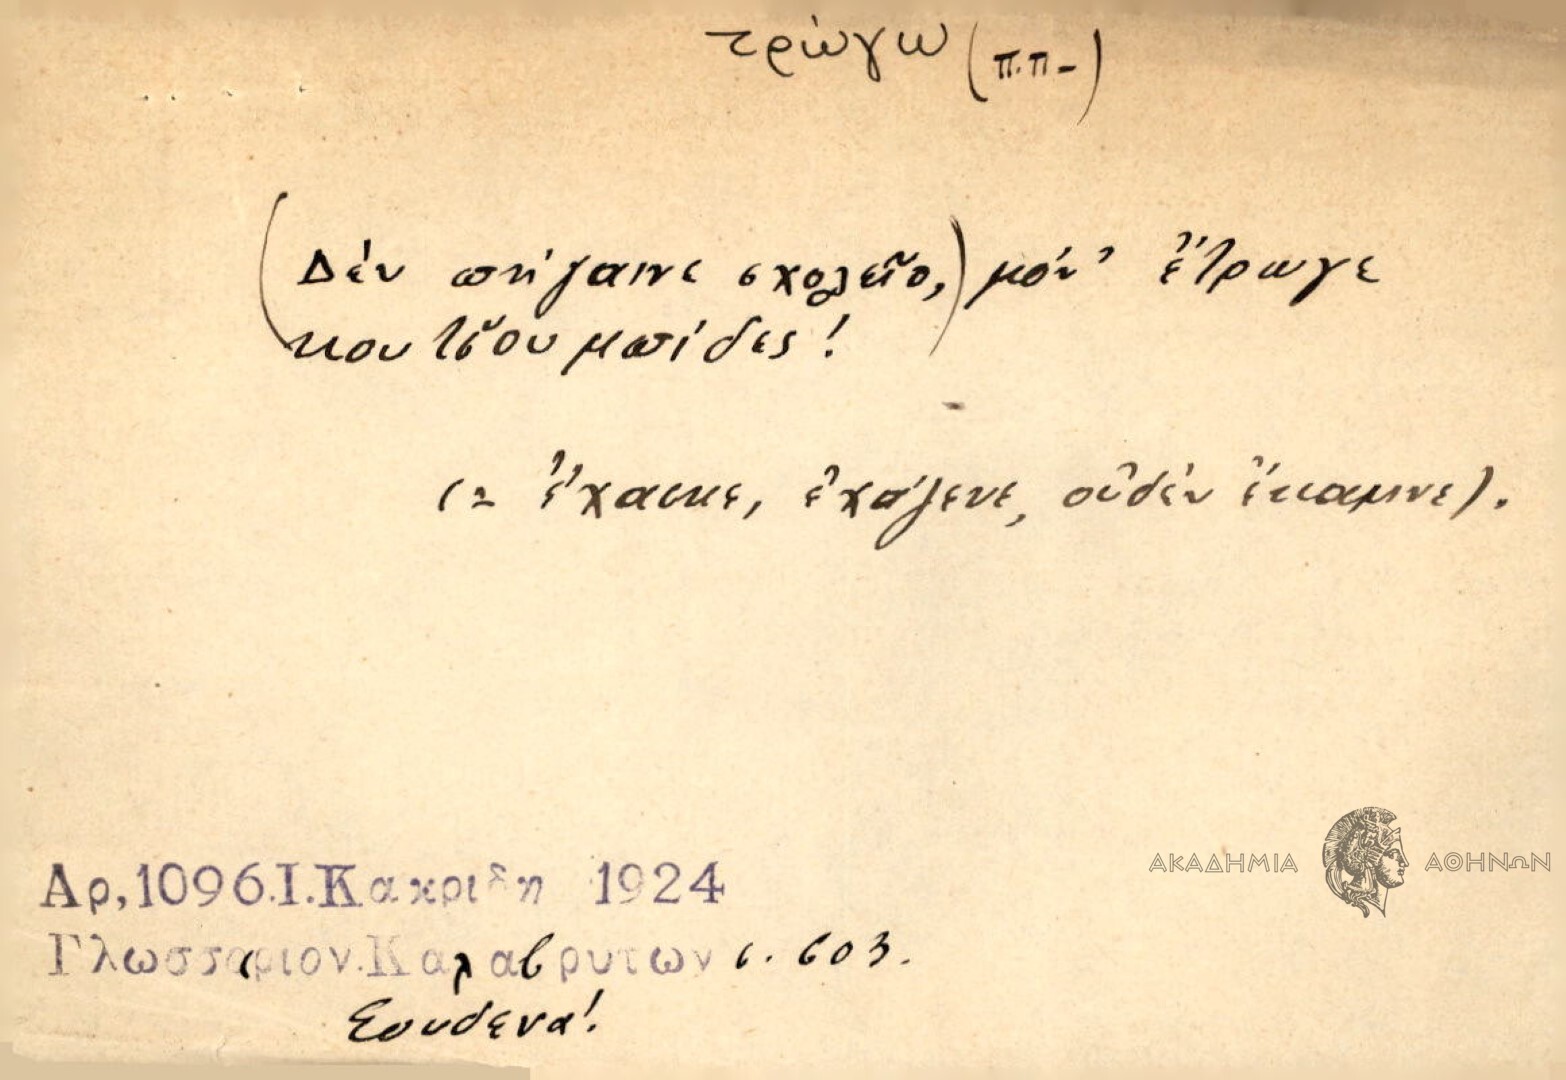 τρώγω (π.π-)
(Δὲν πήγαινε σχολεῖο,) μόν' ἔτρωγε
κουτσουμπίδες!
(= ἔχασκε, ἐχάζευε, οὐδὲν ἔκαμνε).
Αρ, 1096.Ι.Κακριδη 1924
Γλωσσαριον.Καλαβρυτων σ. 603.
Σουδενα!
ΑΚΑΔΗΜΙΑ ΑΘΗΝΩΝ